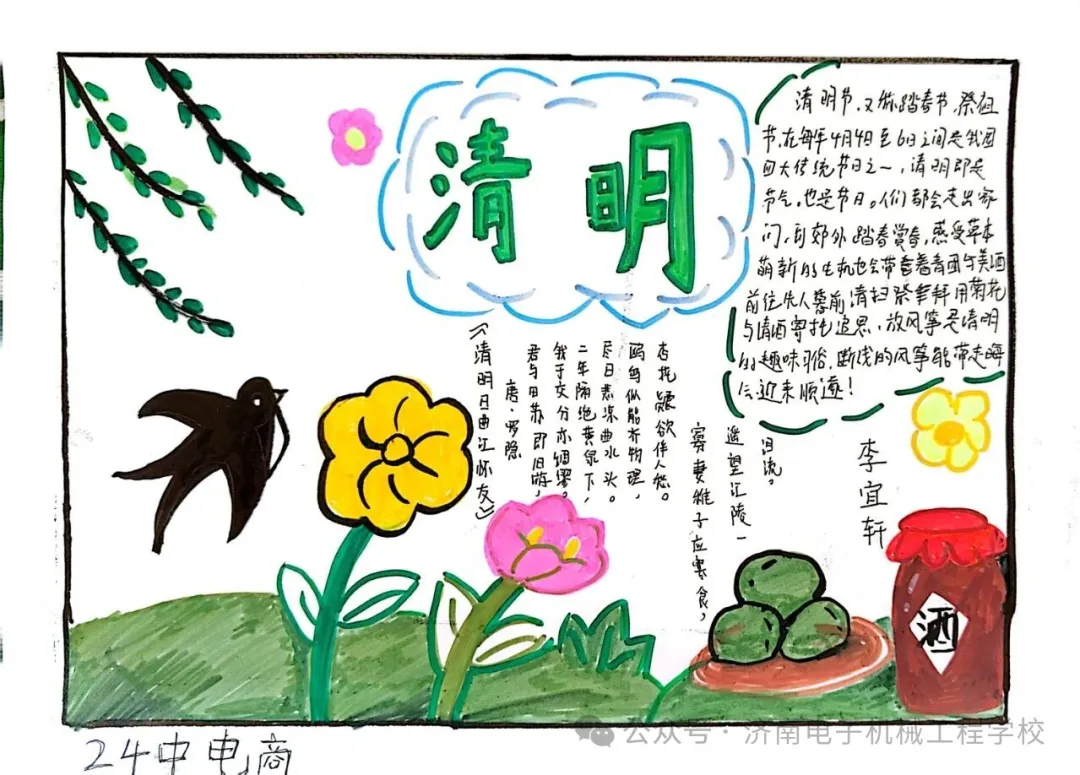 清明
清明节,又称踏春节,祭祖
节,在每年4月4日至6日之间是我国
四大传统节日之一,清明即是
节气,也是节日。人们都会走出家
门,到郊外踏春赏春,感受草本
萌新的生机也会带着青团与美酒
前往先人墓前清扫祭拜用菊花
与清酒寄托追思,放风筝是清明
的趣味习俗,断线的风筝能带走晦
迎来顺遂!
《清明日曲江怀友》
唐·罗隐
君与田苏即旧游,
我于交分亦绸缪。
二年隔绝黄泉下,
尽日悲凉曲水头。
鸥鸟似能齐物理,
杏花疑欲伴人愁。
寡妻稚子应寒食,
遥望江陵一
泪流。
李宜轩
酒
24中电商
公众号 · 济南电子机械工程学校